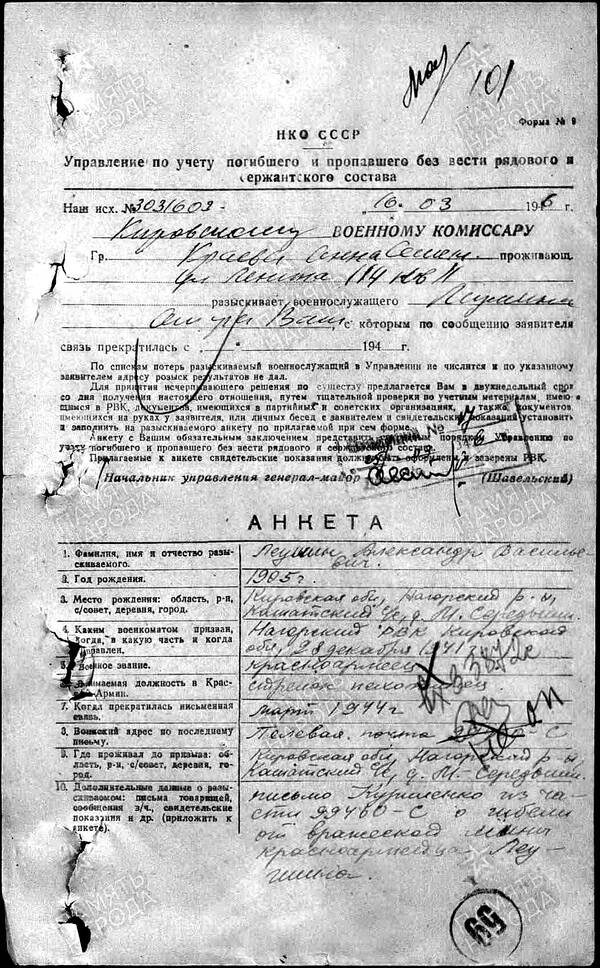 101
Форма № 9
НКО СССР
Управление по учету погибшего и пропавшего без вести рядового и
сержантского состава
Наш исх. № 16. 03 1946 г.
Кировскому ВОЕННОМУ КОМИССАРУ
Гр. Краева Анна Семен. проживающ.
ул Ленина 114 кв
разыскивает военнослужащего
с которым по сообщению заявителя
связь прекратилась с 194 г.
По спискам потерь разыскиваемый военнослужащий в Управлении не числится и по указанному
заявителем адресу розыск результатов не дал.
Для принятия исчерпывающего решения по существу предлагается Вам в двухнедельный срок
со дня получения настоящего отношения, путем тщательной проверки по учетным материалам, имею-
щимся в РВК, документов, имеющихся в партийных и советских организациях, а также документов
имеющихся на руках у заявителя, или личных бесед с заявителем и свидетельских показаний установить
и заполнить на разыскиваемого анкету по прилагаемой при сем форме.
Анкету с Вашим обязательным заключением представить порядком Управлению по
учету погибшего и пропавшего без вести рядового и сержантского состава
Прилагаемые к анкете свидетельские показания должны быть оформлены и заверены РВК.
Начальник управления генерал-майор (Шавельский)
АНКЕТА
1. Фамилия, имя и отчество разы-
скиваемого.
Леушин Александр Василье-
вич.
2. Год рождения.
1905 г.
3. Место рождения: область, р-н,
с/совет, деревня, город.
Кировская обл, Нагорский р-н,
д. М. Середыши.
4. Каким военкоматом призван,
когда, в какую часть и когда
направлен.
Нагорский РВК Кировской
обл, 28 декабря 1941
5. Военное звание.
красноармеец
6. Занимаемая должность в Крас-
ной Армии.
стрелок пехотинец
7. Когда прекратилась письменная
связь.
март 1944 г
8. Воинский адрес по последнему
письму.
Полевая почта
9. Где проживал до призыва: об-
ласть, р-н, с/совет, деревня, го-
род.
Кировская обл, Нагорский р-н
д. М-Середыши.
10. Дополнительные данные о разы-
скиваемом: письма товарищей,
сообщения в/ч., свидетельские
показания и др. (приложить к
анкете).
письмо Куриленко из ча-
сти 99460-С о гибели
от вражеской мины
красноармейца Леу-
шина.
59
ПАМЯТЬ
НАРОДА